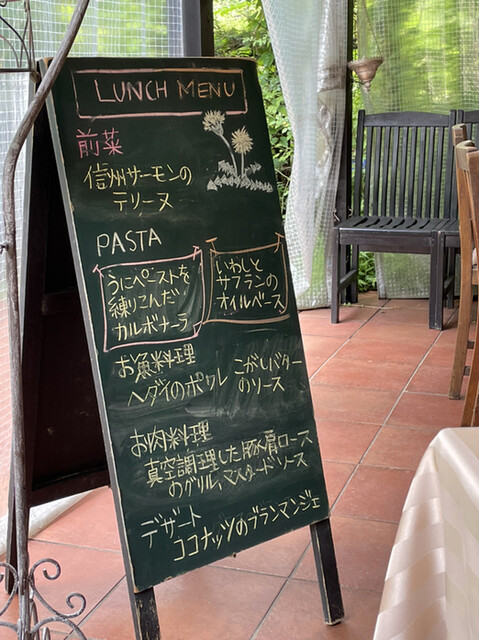 LUNCH MENU
前菜
信州サーモンの
テリーヌ
PASTA
うにペーストを
練りこんだ
カルボナーラ
いわしと
サフランの
オイルベース
お魚料理
ヘダイのポワレ こがしバター
のソース
お肉料理
真空調理した豚肩ロース
のグリル、マスタードソース
デザート
ココナッツのブランマンジェ